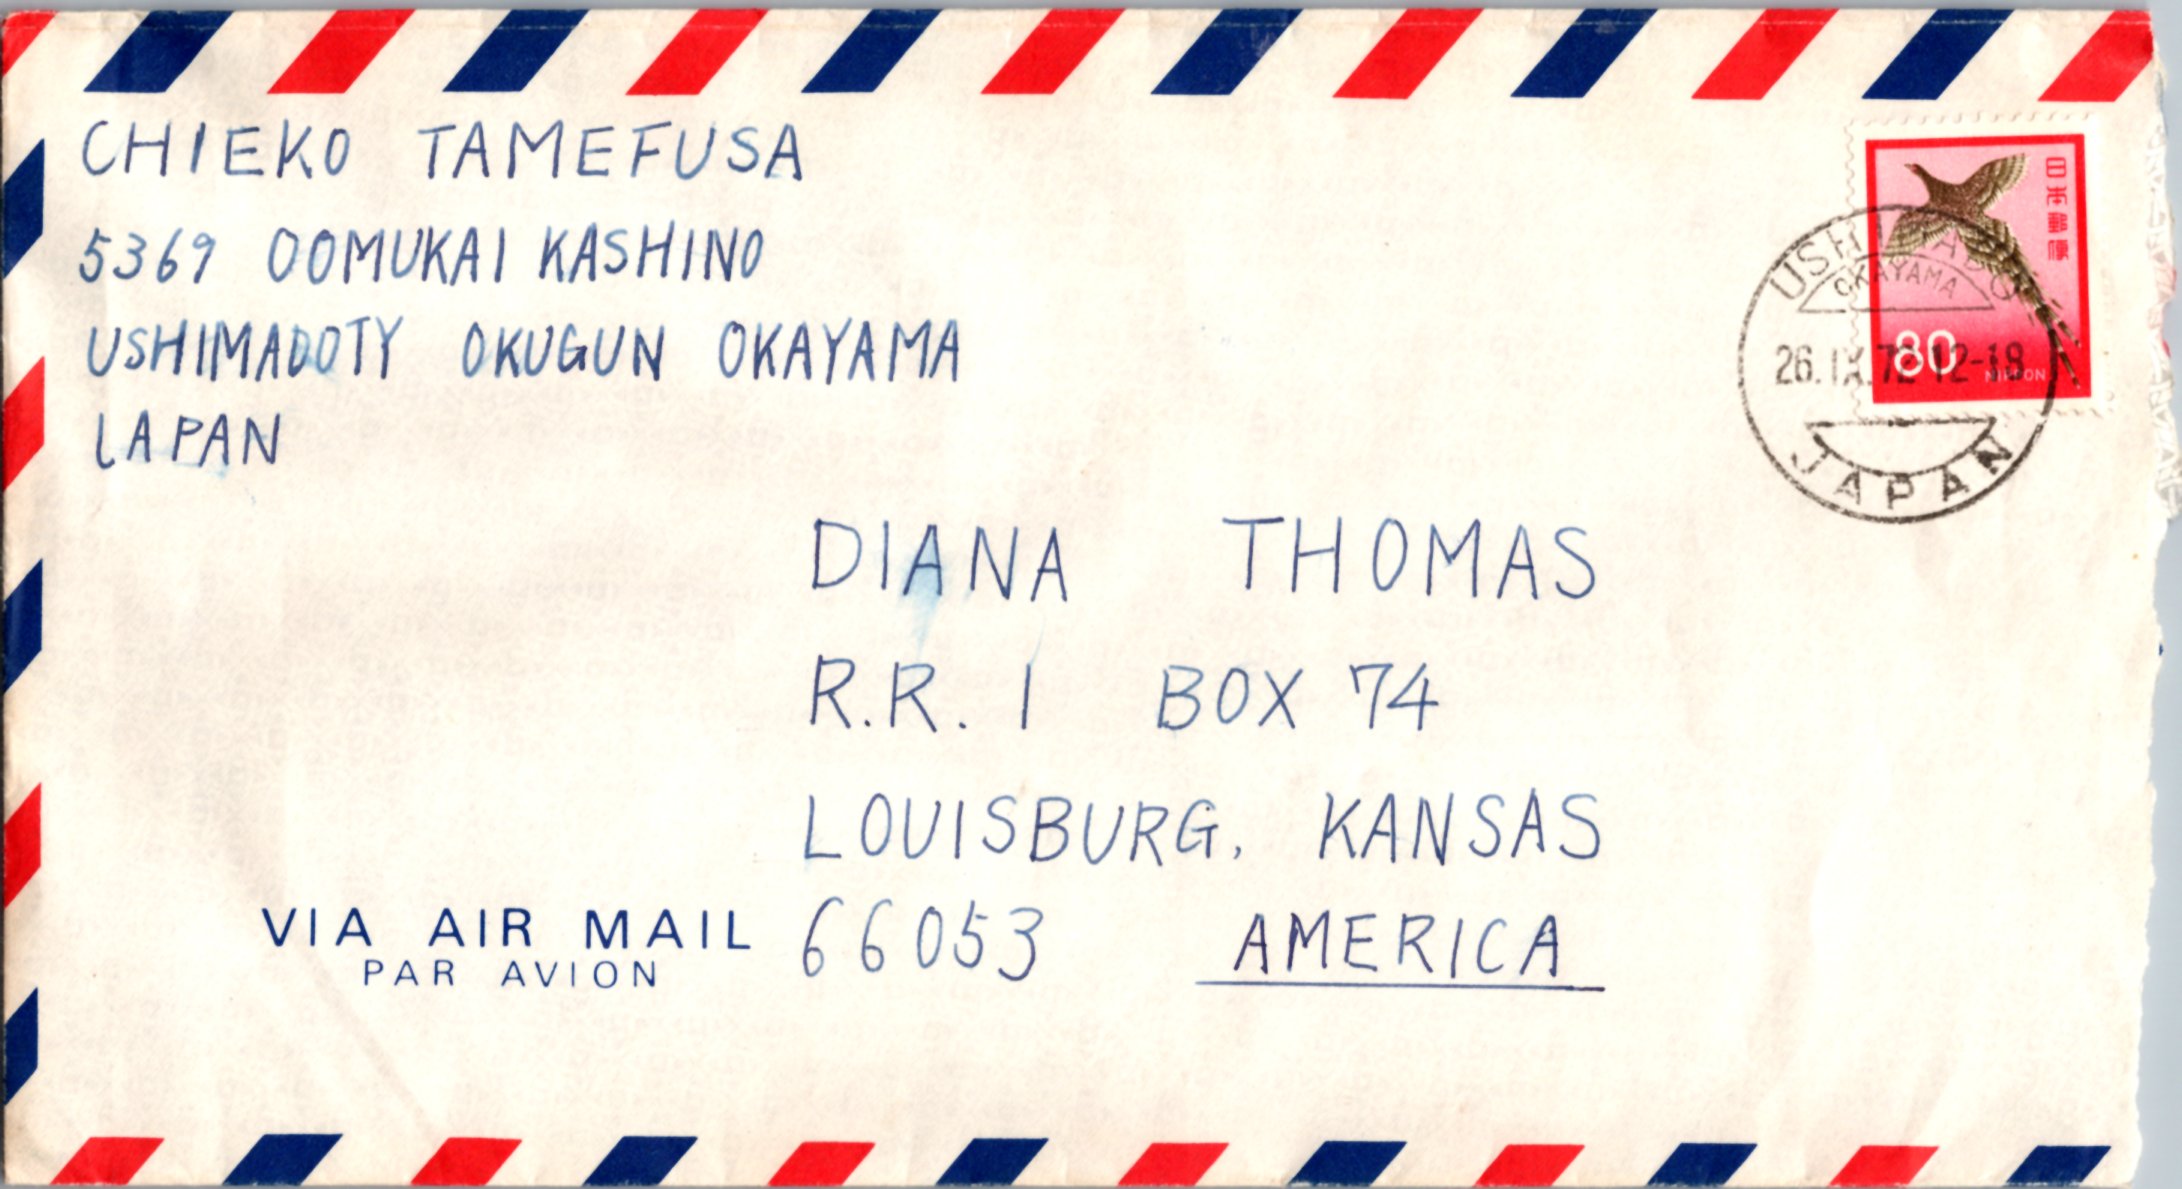 CHIEKO TAMEFUSA
5369 OOMUKAI KASHINO
USHIMADOTY OKUGUN OKAYAMA
JAPAN
日本郵便
80
NIPPON
USHIMADO
OKAYAMA
26.IX.72 12-18
JAPAN
DIANA THOMAS
R.R. 1 BOX 74
LOUISBURG, KANSAS
66053 AMERICA
VIA AIR MAIL
PAR AVION